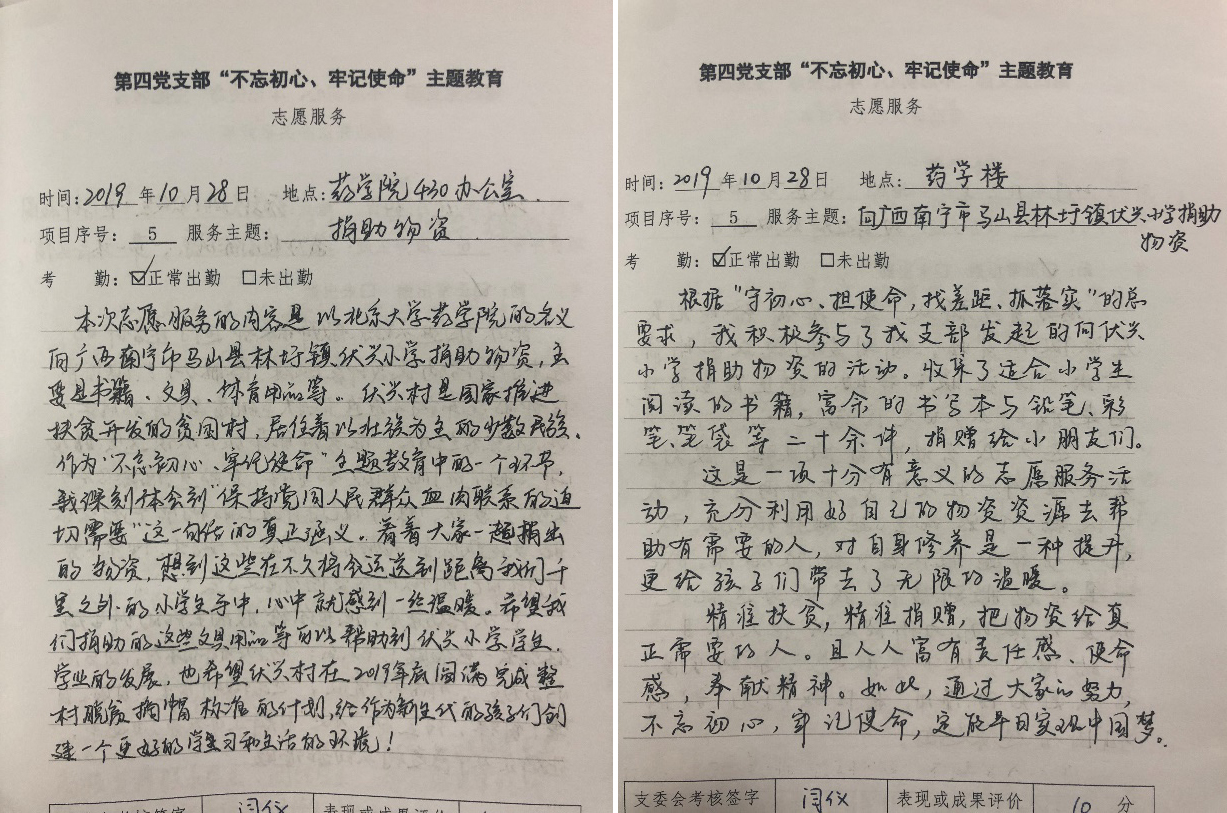 第四党支部“不忘初心、牢记使命”主题教育
志愿服务
时间:2019年10月28日 地点:药学院430办公室.
项目序号:5 服务主题:捐助物资
考 勤:☑正常出勤 □未出勤
本次志愿服务的内容是以北京大学药学院的名义
向广西南宁市马山县林圩镇伏兴小学捐助物资,主
要是书籍、文具、体育用品等。伏兴村是国家推进
扶贫开发的贫困村,居住着以壮族为主的少数民族。
作为“不忘初心、牢记使命”主题教育中的一个环节,
我深刻体会到“保持党同人民群众血肉联系的迫
切需要”这一句话的真正涵义。看着大家一起捐出
的物资,想到这些在不久将会运送到距离我们千
里之外的小学生手中,心中就感到一丝温暖。希望我
们捐助的这些文具用品等可以帮助到伏兴小学学生,
学业的发展,也希望伏兴村在2019年底圆满完成整
村脱贫摘帽标准的计划,给作为新生代的孩子们创
建一个更好的学习和生活的环境!
核签字 闫仪 表现或成果评价
第四党支部“不忘初心、牢记使命”主题教育
志愿服务
时间:2019年10月28日 地点:药学楼
项目序号:5 服务主题:向广西南宁市马山县林圩镇伏兴小学捐助
物资
考 勤:☑正常出勤 □未出勤
根据“守初心、担使命,找差距、抓落实”的总
要求,我积极参与了我支部发起的向伏兴
小学捐助物资的活动。收集了适合小学生
阅读的书籍,富余的书写本与铅笔、彩
笔、笔袋等二十余件,捐赠给小朋友们。
这是一项十分有意义的志愿服务活
动,充分利用好自己的物资资源去帮
助有需要的人,对自身修养是一种提升,
更给孩子们带去了无限的温暖。
精准扶贫,精准捐赠,把物资给真
正需要的人。且人人富有责任感、使命
感,奉献精神。如此,通过大家的努力,
不忘初心,牢记使命,定能早日实现中国梦。
支委会考核签字 闫仪 表现或成果评价 10 分